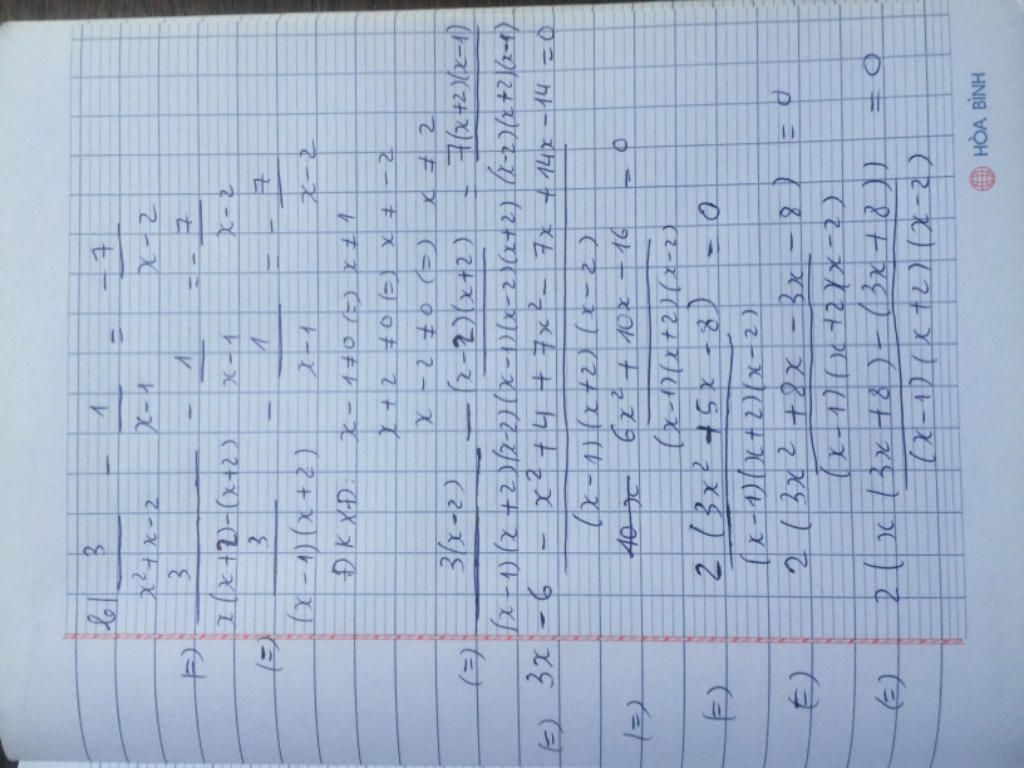 b) 3/(x²+x-2) - 1/(x-1) = -7/(x-2)
(=) 3/(x(x+2)-(x+2)) - 1/(x-1) = -7/(x-2)
(=) 3/((x-1)(x+2)) - 1/(x-1) = -7/(x-2)
ĐKXĐ: x-1≠0 (=) x≠1
x+2≠0 (=) x≠-2
x-2≠0 (=) x≠2
(=) 3(x-2)/((x-1)(x+2)(x-2)) - (x-2)(x+2)/((x-1)(x-2)(x+2)) - 7(x+2)(x-1)/((x-2)(x+2)(x-1))
(=) (3x-6-x²+4+7x²-7x+14x-14)/((x-1)(x+2)(x-2)) =0
(=) (6x²+10x-16)/((x-1)(x+2)(x-2)) =0
(=) 2(3x²+5x-8)/((x-1)(x+2)(x-2)) =0
(=) 2(3x²+8x-3x-8)/((x-1)(x+2)(x-2)) =0
(=) 2(x(3x+8)-(3x+8))/((x-1)(x+2)(x-2)) =0
HÒA BÌNH